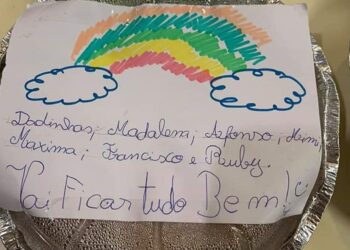 Dadinhas; Madalena; Afonso;
Maxima; Francisco e Ruby.
Vai Ficar tudo Bem!